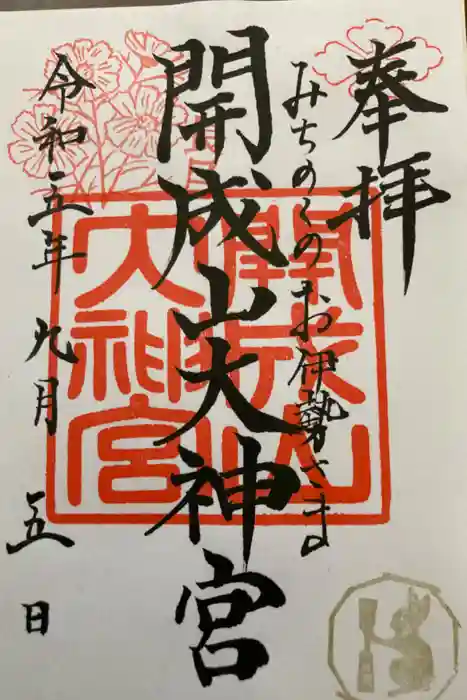 奉拝
みちのくのお伊勢さま
開成山大神宮
令和五年九月五日
開成山
大神宮